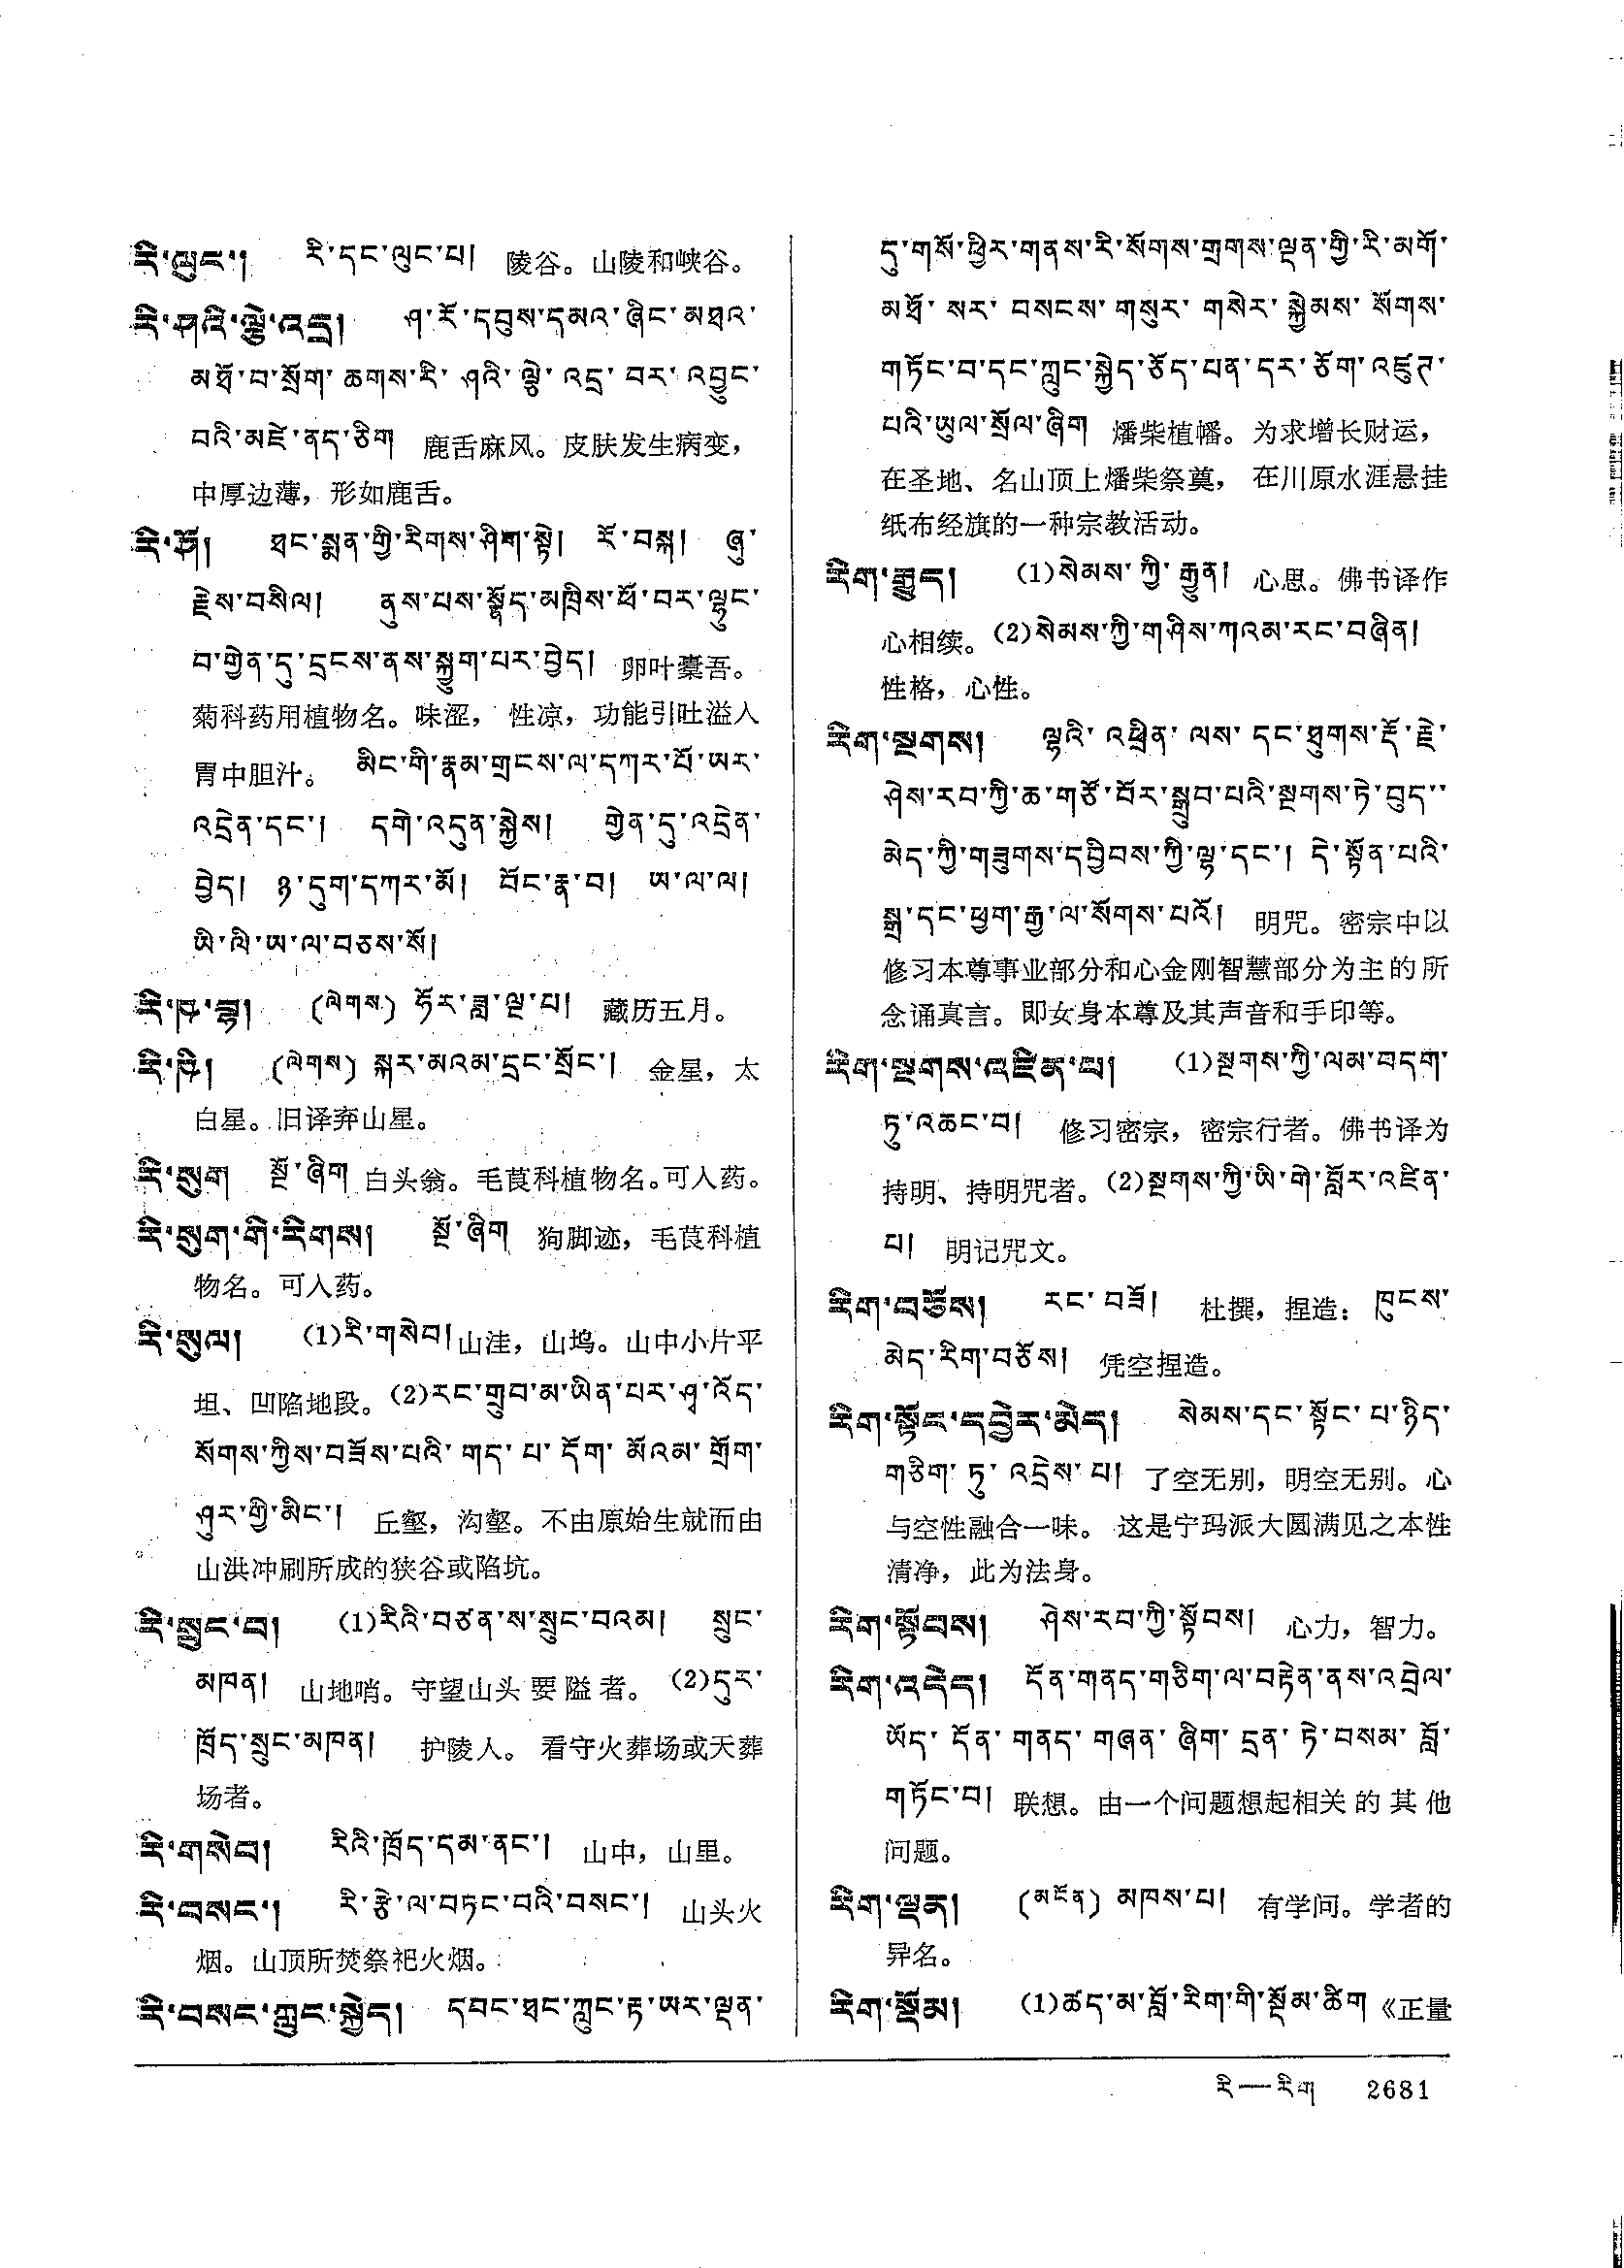 རི་ལུང་། རི་དང་ལུང་པ། 陵谷。山陵和峡谷。
རི་ཤའི་ལྕེ་འདྲ། ཤ་རོ་དབུས་དམའ་ཞིང་མཐའ་
མཐོ་བ་སྲོག་ཆགས་རི་ཤའི་ལྕེ་འདྲ་བར་འབྱུང་
བའི་མཛེ་ནད་ཅིག 鹿舌麻风。皮肤发生病变，
中厚边薄，形如鹿舌。
རི་ཤོ། ཐང་སྨན་གྱི་རིགས་ཤིག་སྟེ། རོ་བསྐ། ཞུ་
རྗེས་བསིལ། ནུས་པས་སྣོད་མཁྲིས་ཕོ་བར་ལྷུང་
བ་གྱེན་དུ་དྲངས་ནས་སྐྱུག་པར་བྱེད། 卵叶橐吾。
菊科药用植物名。味涩，性凉，功能引吐溢入
胃中胆汁。མིང་གི་རྣམ་གྲངས་ལ་དཀར་པོ་ཡར་
འདྲེན་དང་། དགེ་འདུན་སྐྱེས། གྱེན་དུ་འདྲེན་
བྱེད། ཉ་དུག་དཀར་མོ། བོང་རྣ་བ། ཡ་ལ་ལ།
ཡི་ལི་ཡ་ལ་བཅས་སོ།
(ལེགས) ཧོར་ཟླ་ལྔ་པ། 藏历五月。
(ལེགས) སྐར་མའམ་དྲང་སྲོང་། 金星，太
白星。旧译弃山星。
རི་སུག སྔོ་ཞིག 白头翁。毛茛科植物名。可入药。
རི་སུག་གི་རིགས། སྔོ་ཞིག 狗脚迹，毛茛科植
物名。可入药。
རི་སུལ། (1)རི་གསེབ། 山洼，山坞。山中小片平
坦、凹陷地段。(2)རང་གྲུབ་མ་ཡིན་པར་ཤྭ་འོད་
སོགས་ཀྱིས་བཟོས་པའི་གད་པ་དོག་མོའམ་གྲོག་
ཤུར་གྱི་མིང་། 丘壑，沟壑。不由原始生就而由
山洪冲刷所成的狭谷或陷坑。
རི་སྲུང་བ། (1)རིའི་བཙན་ས་སྲུང་བའམ། སྲུང་
མཁན། 山地哨。守望山头要隘者。(2)དུར་
ཁྲོད་སྲུང་མཁན། 护陵人。看守火葬场或天葬
场者。
རི་གསེབ། རིའི་ཁྲོད་དམ་ནང་། 山中，山里。
རི་བསང་། རི་རྩེ་ལ་བཏང་བའི་བསང་། 山头火
烟。山顶所焚祭祀火烟。
རི་བསང་ཀླུང་སྐྱེད། དབང་ཐང་ཀླུང་རྟ་ཡར་ལྡན་
དུ་གསོ་ཕྱིར་གནས་རི་སོགས་གྲགས་ལྡན་གྱི་རི་མགོ་
མཐོ་སར་བསངས་གསུར་གསེར་སྐྱེམས་སོགས་
གཏོང་བ་དང་ཀླུང་སྐྱེད་ཅོད་པན་དར་ཅོག་འཛུག་
པའི་ཡུལ་སྲོལ་ཞིག 燔柴植幡。为求增长财运，
在圣地、名山顶上燔柴祭奠，在川原水涯悬挂
纸布经旗的一种宗教活动。
རིག་རྒྱུད། (1)སེམས་ཀྱི་རྒྱུན། 心思。佛书译作
心相续。(2)སེམས་ཀྱི་གཤིས་ཀའམ་རང་བཞིན།
性格，心性。
རིག་སྔགས། ལྷའི་འཕྲིན་ལས་དང་ཐུགས་རྡོ་རྗེ་
ཤེས་རབ་ཀྱི་ཆ་གཙོ་བོར་སྒྲུབ་པའི་སྔགས་ཏེ་བུད་
མེད་ཀྱི་གཟུགས་དབྱིབས་ཀྱི་ལྷ་དང་། དེ་སྟོན་པའི་
སྒྲ་དང་ཕྱག་རྒྱ་ལ་སོགས་པའོ། 明咒。密宗中以
修习本尊事业部分和心金刚智慧部分为主的所
念诵真言。即女身本尊及其声音和手印等。
རིག་སྔགས་འཛིན་པ། (1)སྔགས་ཀྱི་ལམ་བདག་
ཏུ་འཆང་བ། 修习密宗，密宗行者。佛书译为
持明、持明咒者。(2)སྔགས་ཀྱི་ཡི་གེ་བློར་འཛིན་
པ། 明记咒文。
རིག་བཅོས། རང་བཟོ། 杜撰，捏造：ཁུངས་
མེད་རིག་བཅོས། 凭空捏造。
རིག་སྟོང་དབྱེར་མེད། སེམས་དང་སྟོང་པ་ཉིད་
གཅིག་ཏུ་འདྲེས་པ། 了空无别，明空无别。心
与空性融合一味。这是宁玛派大圆满见之本性
清净，此为法身。
རིག་སྟོབས། ཤེས་རབ་ཀྱི་སྟོབས། 心力，智力。
རིག་འདེད། དོན་གནད་གཅིག་ལ་བརྟེན་ནས་འབྲེལ་
ཡོད་དོན་གནད་གཞན་ཞིག་དྲན་ཏེ་བསམ་བློ་
གཏོང་བ། 联想。由一个问题想起相关的其他
问题。
རིག་ལྡན། (མངོན) མཁས་པ། 有学问。学者的
异名。
རིག་སྡོམ། (1)ཚད་མ་བློ་རིག་གི་སྡོམ་ཚིག 《正量
རི—རིག 2681